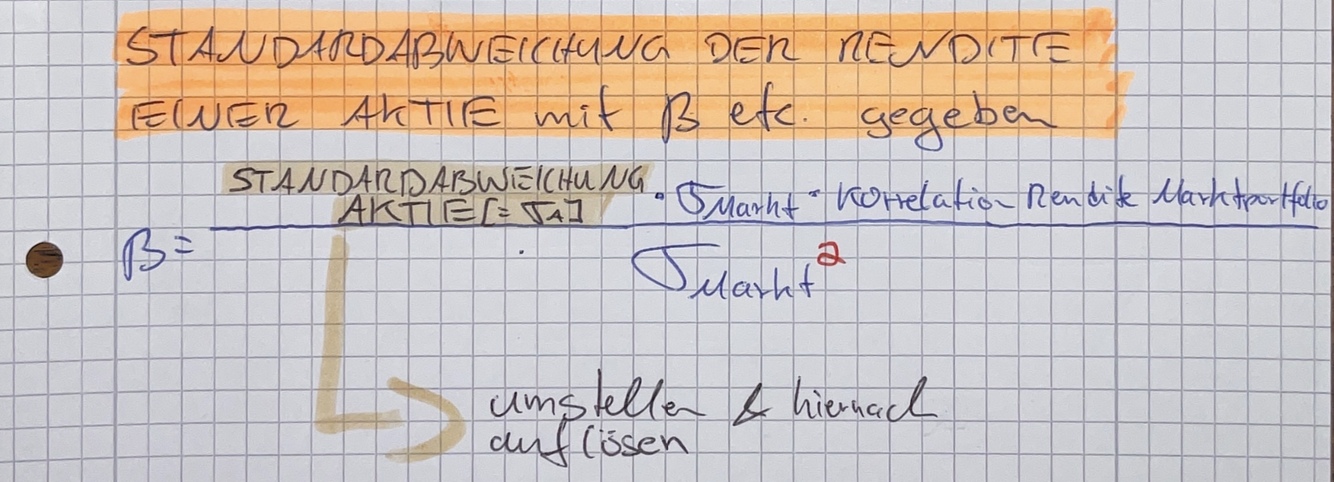 STANDARDABWEICHUNG DER RENDITE
EINER AKTIE mit β etc. gegeben
STANDARDABWEICHUNG
AKTIE [= σA] · σMarkt · Korrelation Rendite Marktportfolio
β =
σMarkt²
umstellen & hiernach
auflösen